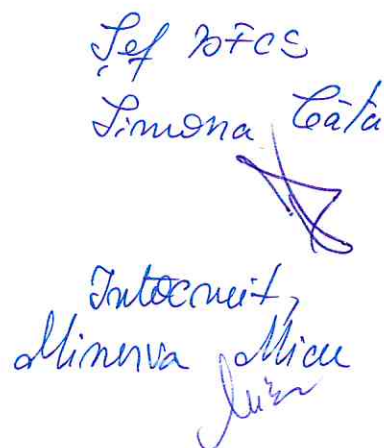 Șef BFCS
Simona Câța
Intocmit,
Minerva Micu